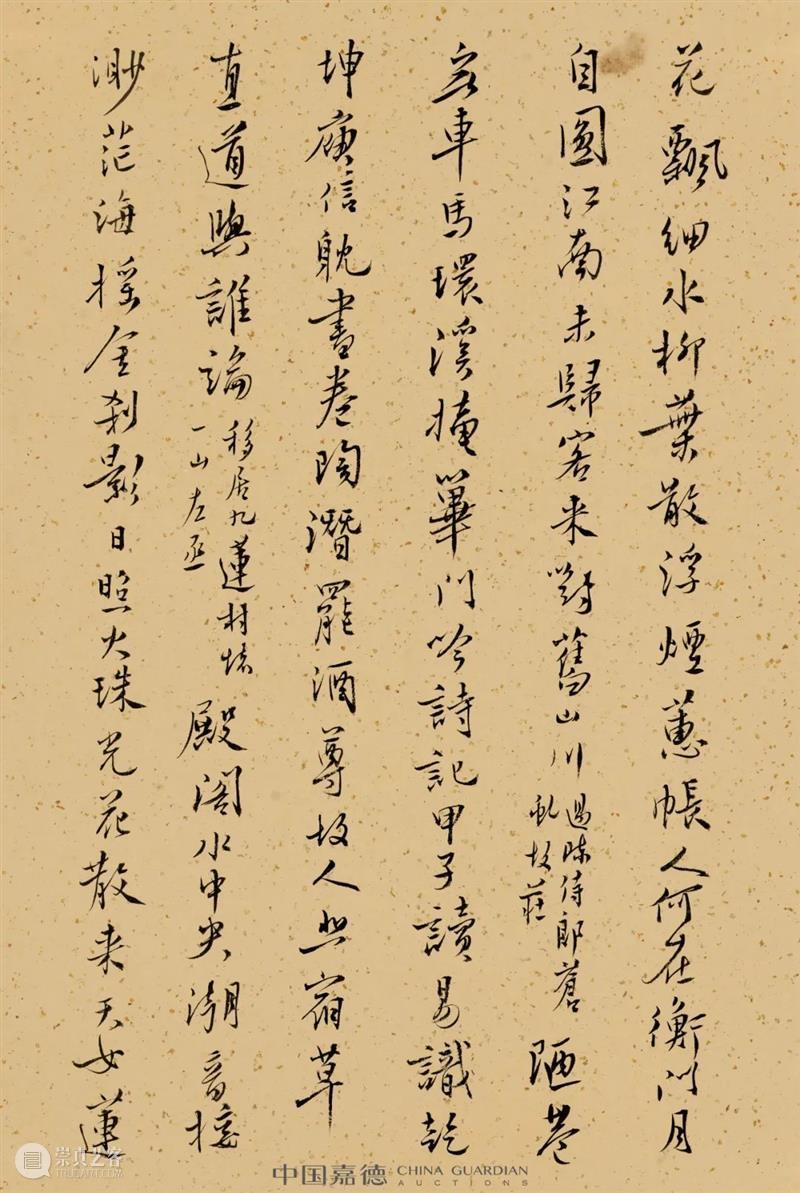 花飄細水柳葉散浮煙蕙帳人何在衡門月
自圓江南未歸客來對舊山川過陳侍郎蒼
虬故莊
陋巷
無車馬環溪掩蓽門吟詩記甲子讀易識乾
坤庾信耽書卷陶潛罷酒尊故人悲宿草
直道與誰論移居九蓮村懷
一山左丞
殿閣水中央潮音接
渺茫海搖金刹影日照火珠光花散来天女蓮
中国嘉德
CHINA GUARDIAN
AUCTIONS
崇真艺客